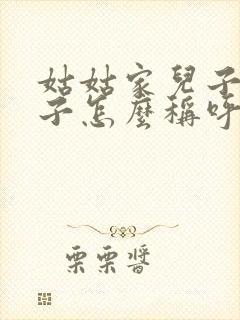 姑姑家兒子
子怎麼稱呼
栗栗醬